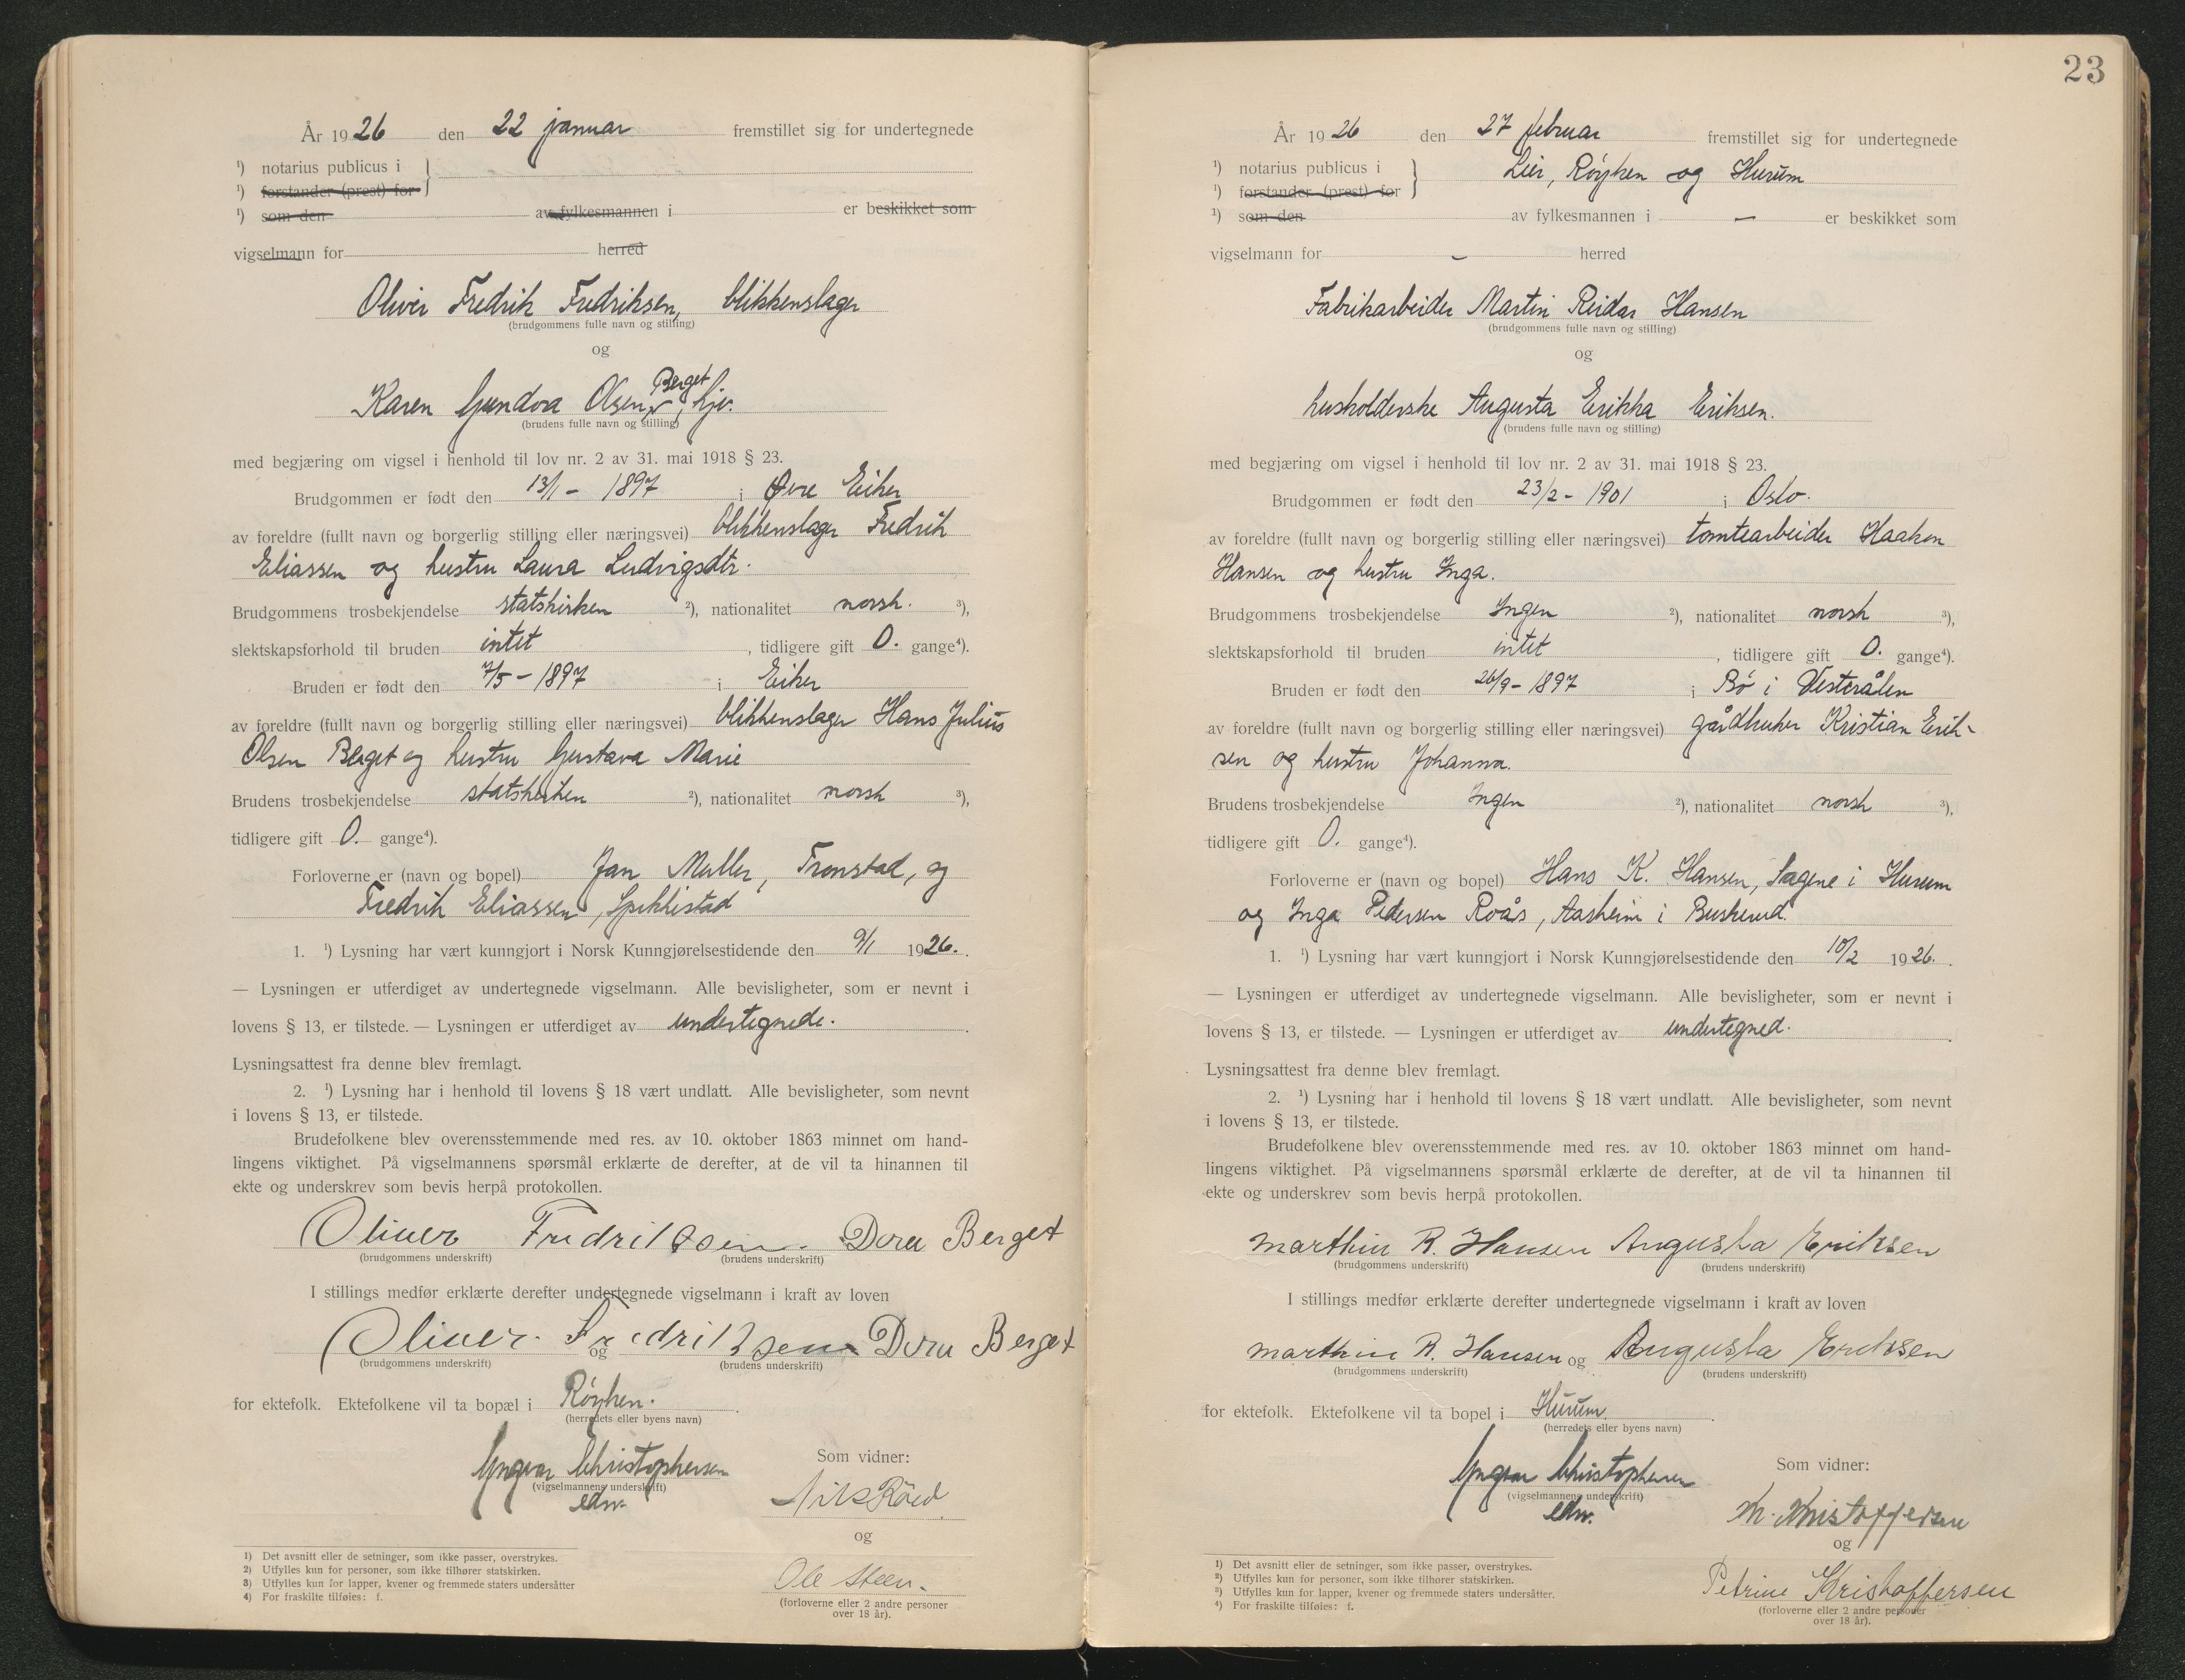 År 1926 den 22 januar fremstillet sig for undertegnede
¹) notarius publicus i
¹) forstander (prest) for
¹) som den av fylkesmannen i er beskikket som
vigselmann for herred
Oliver Fredrik Fredriksen, blikkenslager
(brudgommens fulle navn og stilling)
og
Berget
Karen Gundva Olsen, hjv.
(brudens fulle navn og stilling)
med begjæring om vigsel i henhold til lov nr. 2 av 31. mai 1918 § 23.
Brudgommen er født den 13/1 - 1897 i Øvre Eiker
av foreldre (fullt navn og borgerlig stilling eller næringsvei) blikkenslager Fredrik
Eliassen og hustru Laura Ludvigsdtr.
Brudgommens trosbekjendelse statskirken ²), nationalitet norsk. ³),
slektskapsforhold til bruden intet, tidligere gift 0. gange⁴).
Bruden er født den 7/5 - 1897 i Eiker
av foreldre (fullt navn og borgerlig stilling eller næringsvei) blikkenslager Hans Julius
Olsen Berget og hustru Gustava Marie
Brudens trosbekjendelse statskirken ²), nationalitet norsk ³),
tidligere gift 0. gange⁴).
Forloverne er (navn og bopel) Jan Møller, Tronstad, og
Fredrik Eliassen, Spikkestad
1. ¹) Lysning har vært kunngjort i Norsk Kunngjørelsestidende den 9/1 1926.
— Lysningen er utferdiget av undertegnede vigselmann. Alle bevisligheter, som er nevnt i
lovens § 13, er tilstede. — Lysningen er utferdiget av undertegnede.
Lysningsattest fra denne blev fremlagt.
2. ¹) Lysning har i henhold til lovens § 18 vært undlatt. Alle bevisligheter, som nevnt
i lovens § 13, er tilstede.
Brudefolkene blev overensstemmende med res. av 10. oktober 1863 minnet om hand-
lingens viktighet. På vigselmannens spørsmål erklærte de derefter, at de vil ta hinannen til
ekte og underskrev som bevis herpå protokollen.
Oliver Fredriksen. Dora Berget
(brudgommens underskrift) (brudens underskrift)
I stillings medfør erklærte derefter undertegnede vigselmann i kraft av loven
Oliver. Fredriksen og Dora Berget
(brudgommens underskrift) (brudens underskrift)
for ektefolk. Ektefolkene vil ta bopæl i Røyken.
(herredets eller byens navn)
Yngvar Christophersen
(vigselmannens underskrift)
edv.
Som vidner:
Nils Röed
og
Ole Steen.
(forloverne eller 2 andre personer
over 18 år).
1) Det avsnitt eller de setninger, som ikke passer, overstrykes.
2) Utfylles kun for personer, som ikke tilhører statskirken.
3) Utfylles kun for lapper, kvener og fremmede staters undersåtter
4) For fraskilte tilføies: f.
23
År 1926 den 27 februar fremstillet sig for undertegnede
¹) notarius publicus i Lier, Røyken og Hurum
¹) forstander (prest) for
¹) som den av fylkesmannen i — er beskikket som
vigselmann for - herred
Fabrikarbeider Martin Reidar Hansen
(brudgommens fulle navn og stilling)
og
husholderske Augusta Erikka Eriksen.
(brudens fulle navn og stilling)
med begjæring om vigsel i henhold til lov nr. 2 av 31. mai 1918 § 23.
Brudgommen er født den 23/2 - 1901 i Oslo.
av foreldre (fullt navn og borgerlig stilling eller næringsvei) tomtearbeider Haakon
Hansen og hustru Inga.
Brudgommens trosbekjendelse Ingen ²), nationalitet norsk ³),
slektskapsforhold til bruden intet, tidligere gift 0. gange⁴).
Bruden er født den 26/9 - 1897 i Bø i Vesterålen
av foreldre (fullt navn og borgerlig stilling eller næringsvei) gårdbruker Kristian Erik-
sen og hustru Johanna.
Brudens trosbekjendelse Ingen ²), nationalitet norsk ³),
tidligere gift 0. gange⁴).
Forloverne er (navn og bopel) Hans K. Hansen, Sagene i Hurum
og Inga Pedersen Roås, Aasheim i Buskerud.
1. ¹) Lysning har vært kunngjort i Norsk Kunngjørelsestidende den 10/2 1926.
— Lysningen er utferdiget av undertegnede vigselmann. Alle bevisligheter, som er nevnt i
lovens § 13, er tilstede. — Lysningen er utferdiget av undertegned.
Lysningsattest fra denne blev fremlagt.
2. ¹) Lysning har i henhold til lovens § 18 vært undlatt. Alle bevisligheter, som nevnt
i lovens § 13, er tilstede.
Brudefolkene blev overensstemmende med res. av 10. oktober 1863 minnet om hand-
lingens viktighet. På vigselmannens spørsmål erklærte de derefter, at de vil ta hinannen til
ekte og underskrev som bevis herpå protokollen.
Marthin R. Hansen Augusta Eriksen
(brudgommens underskrift) (brudens underskrift)
I stillings medfør erklærte derefter undertegnede vigselmann i kraft av loven
Marthin R. Hansen og Augusta Eriksen
(brudgommens underskrift) (brudens underskrift)
for ektefolk. Ektefolkene vil ta bopel i Hurum.
(herredets eller byens navn)
Yngvar Christophersen
(vigselmannens underskrift)
edv.
Som vidner:
M. Kristoffersen
og
Petrine Kristoffersen
(forloverne eller 2 andre personer
over 18 år).
¹) Det avsnitt eller de setninger, som ikke passer, overstrykes.
²) Utfylles kun for personer, som ikke tilhører statskirken.
³) Utfylles kun for lapper, kvener og fremmede staters undersåtter.
⁴) For fraskilte tilføies: f.